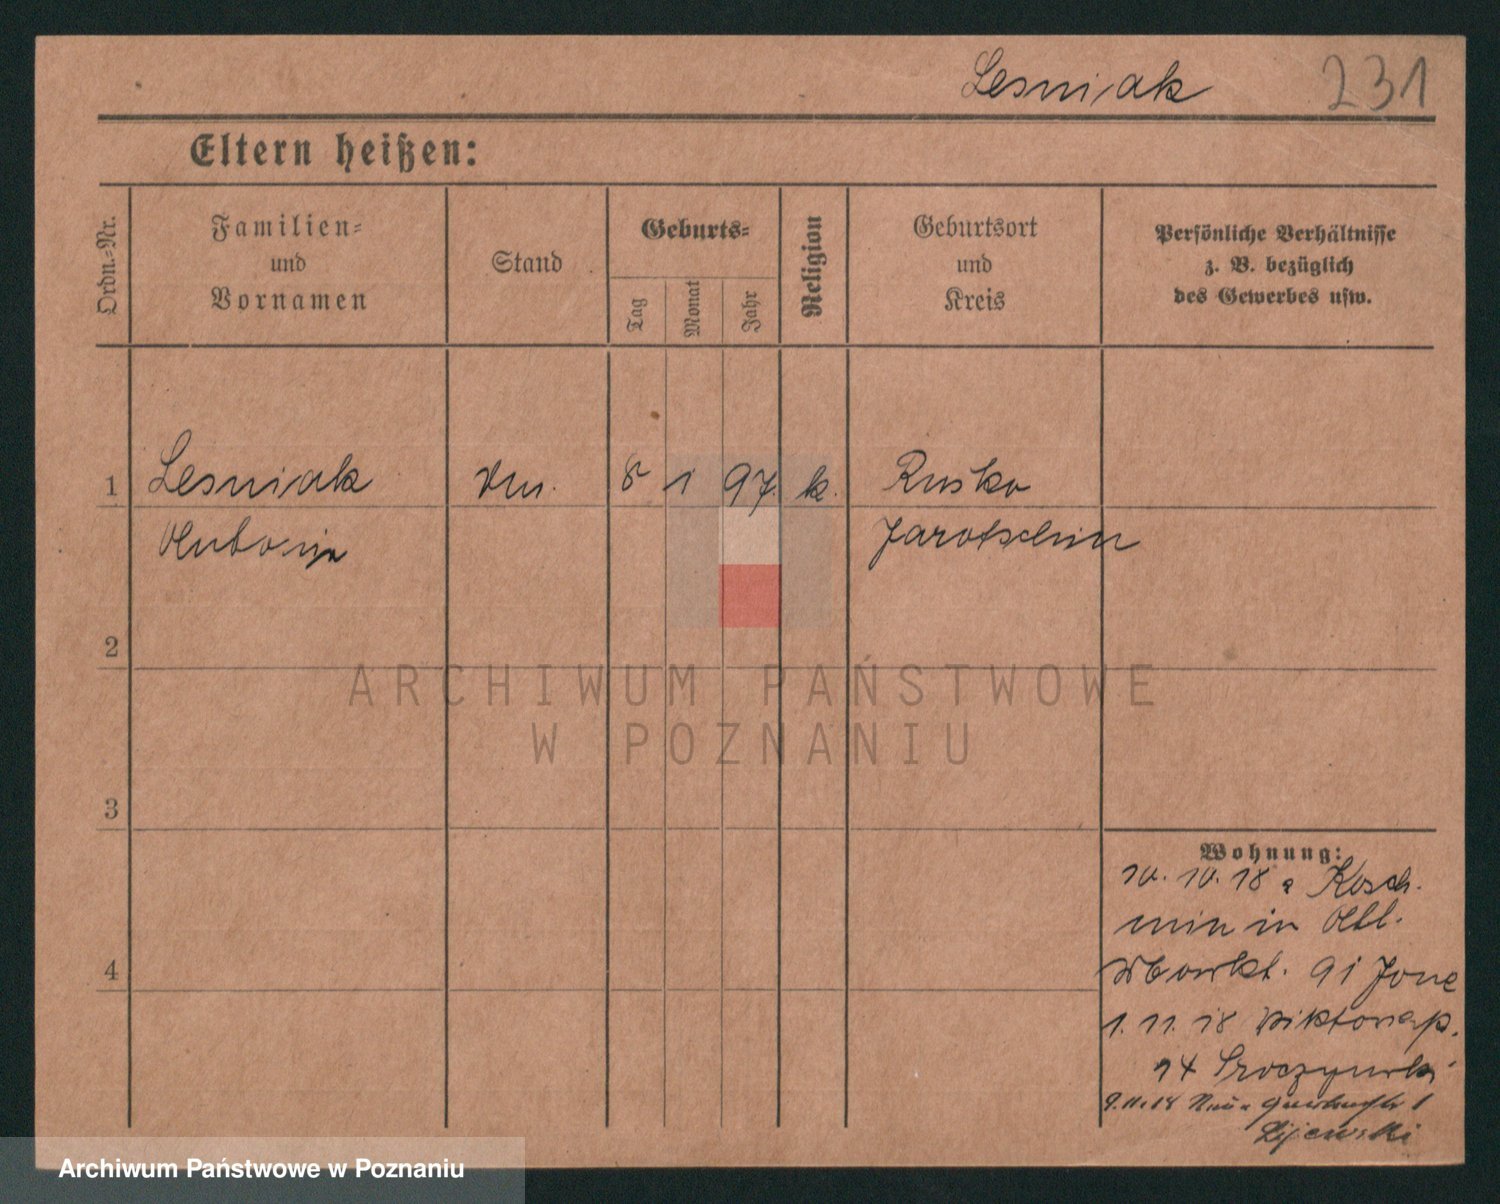 Lesniak 231
Eltern heißen:
Ordn.-Nr.
Familien-
und
Vornamen
Stand
Geburts-
Tag
Monat
Jahr
Religion
Geburtsort
und
Kreis
Persönliche Verhältnisse
z. B. bezüglich
des Gewerbes usw.
1 Lesniak 8 1 97. k. Rusko
Jarotschin
2
3
4
ARCHIWUM PAŃSTWOWE
W POZNANIU
Wohnung:
10. 10. 18 a Kosch-
min in
91
1. 11. 18 Viktoriap.
14 Sroczynski
9.11.18
Lijewski
Archiwum Państwowe w Poznaniu